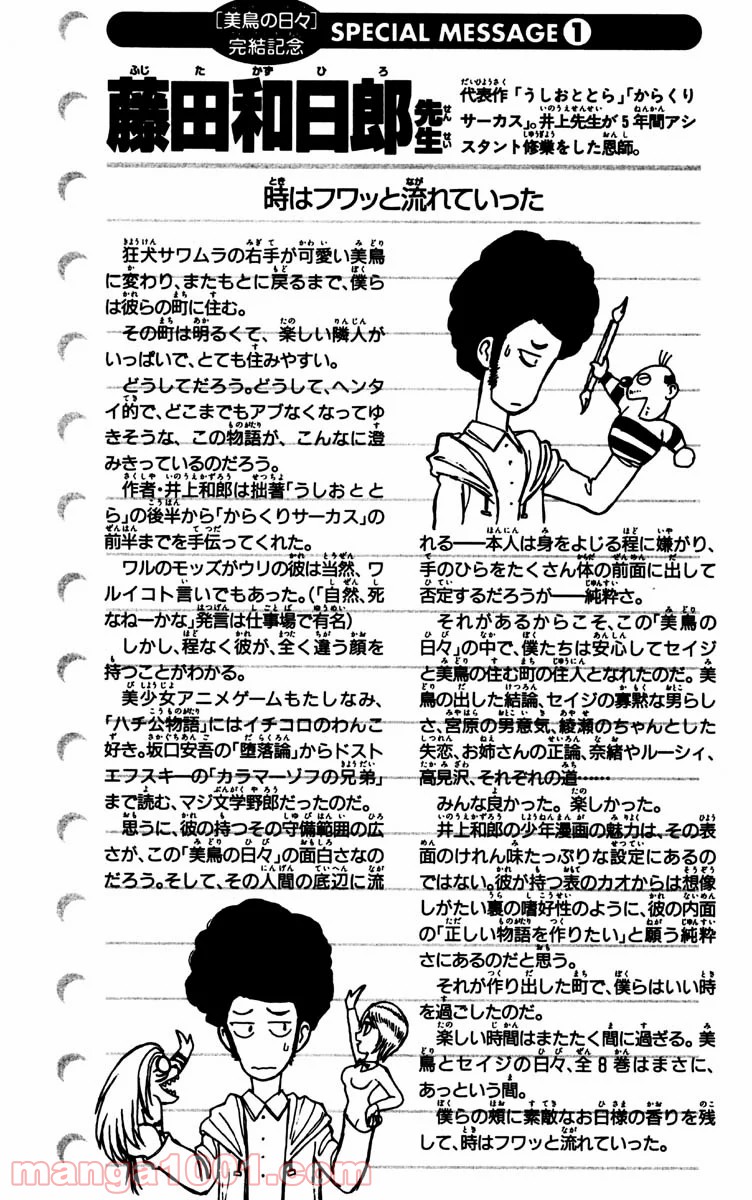 [美鳥の日々]
完結記念
SPECIAL MESSAGE 1
藤田和日郎先生
代表作「うしおととら」「からくり
サーカス」。井上先生が5年間アシ
スタント修業をした恩師。
時はフワッと流れていった
狂犬サワムラの右手が可愛い美鳥
に変わり、またもとに戻るまで、僕ら
は彼らの町に住む。
その町は明るくて、楽しい隣人が
いっぱいで、とても住みやすい。
どうしてだろう。どうして、ヘンタ
イ的で、どこまでもアブなくなってゆ
きそうな、この物語が、こんなに澄
みきっているのだろう。
作者・井上和郎は拙著「うしおとと
ら」の後半から「からくりサーカス」の
前半までを手伝ってくれた。
ワルのモッズがウリの彼は当然、ワ
ルイコト言いでもあった。(「自然、死
なねーかな」発言は仕事場で有名)
しかし、程なく彼が、全く違う顔を
持つことがわかる。
美少女アニメゲームもたしなみ、
「ハチ公物語」にはイチコロのわんこ
好き。坂口安吾の「堕落論」からドスト
エフスキーの「カラマーゾフの兄弟」
まで読む、マジ文学野郎だったのだ。
思うに、彼の持つその守備範囲の広
さが、この「美鳥の日々」の面白さなの
だろう。そして、その人間の底辺に流
れる──本人は身をよじる程に嫌がり、
手のひらをたくさん体の前面に出して
否定するだろうが──純粋さ。
それがあるからこそ、この「美鳥の
日々」の中で、僕たちは安心してセイジ
と美鳥の住む町の住人となれたのだ。美
鳥の出した結論、セイジの寡黙な男らし
さ、宮原の男意気、綾瀬のちゃんとした
失恋、お姉さんの正論、奈緒やルーシィ、
高見沢、それぞれの道……
みんな良かった。楽しかった。
井上和郎の少年漫画の魅力は、その表
面のけれん味たっぷりな設定にあるの
ではない。彼が持つ表のカオからは想像
しがたい裏の嗜好性のように、彼の内面
の「正しい物語を作りたい」と願う純粋
さにあるのだと思う。
それが作り出した町で、僕らはいい時
を過ごしたのだ。
楽しい時間はまたたく間に過ぎる。美
鳥とセイジの日々、全8巻はまさに、
あっという間。
僕らの頬に素敵なお日様の香りを残
して、時はフワッと流れていった。
manga1001.com